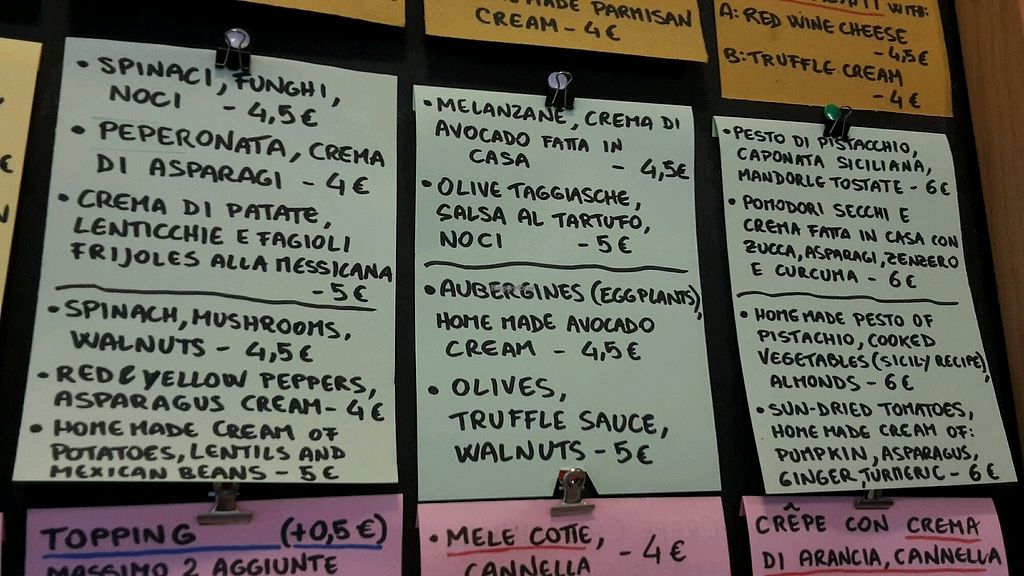 MADE PARMISAN
CREAM - 4€
WITH:
A: RED WINE CHEESE
- 4,5€
B: TRUFFLE CREAM
- 4€
• SPINACI, FUNGHI,
NOCI - 4,5€
• PEPERONATA, CREMA
DI ASPARAGI - 4€
• CREMA DI PATATE,
LENTICCHIE E FAGIOLI
FRIJOLES ALLA MESSICANA
- 5€
• SPINACH, MUSHROOMS,
WALNUTS - 4,5€
• RED & YELLOW PEPPERS,
ASPARAGUS CREAM - 4€
• HOMEMADE CREAM OF
POTATOES, LENTILS AND
MEXICAN BEANS - 5€
• MELANZANE, CREMA DI
AVOCADO FATTA IN
CASA - 4,5€
• OLIVE TAGGIASCHE,
SALSA AL TARTUFO,
NOCI - 5€
• AUBERGINES (EGGPLANTS),
HOME MADE AVOCADO
CREAM - 4,5€
• OLIVES,
TRUFFLE SAUCE,
WALNUTS - 5€
• PESTO DI PISTACCHIO,
CAPONATA SICILIANA,
MANDORLE TOSTATE - 6€
• POMODORI SECCHI E
CREMA FATTA IN CASA CON
ZUCCA, ASPARAGI, ZENZERO
E CURCUMA - 6€
• HOMEMADE PESTO OF
PISTACHIO, COOKED
VEGETABLES (SICILY RECIPE),
ALMONDS - 6€
• SUN-DRIED TOMATOES,
HOME MADE CREAM OF:
PUMPKIN, ASPARAGUS,
GINGER, TURMERIC - 6€
TOPPING (+0,5€)
MASSIMO 2 AGGIUNTE
• MELE COTTE, - 4€
CANNELLA
CRÊPE CON CREMA
DI ARANCIA, CANNELLA